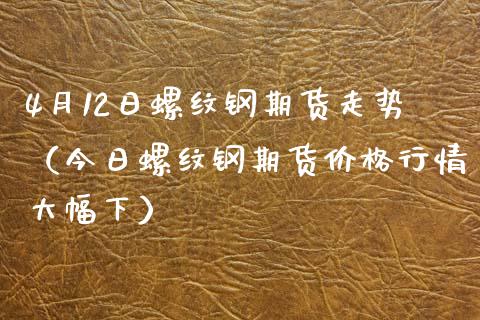 4月12日螺纹钢期货走势
（今日螺纹钢期货价格行情
大幅下）